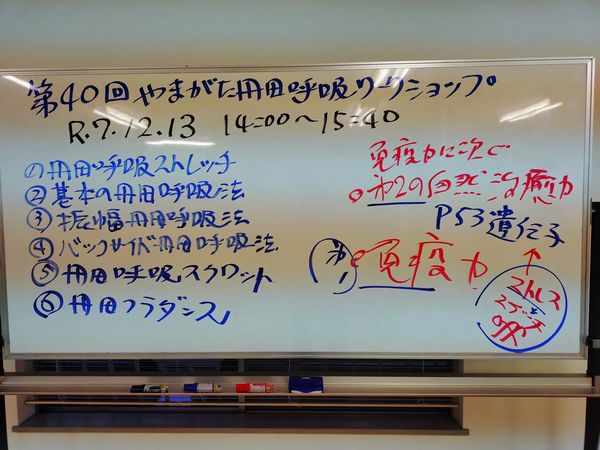 第40回やまがた丹田呼吸ワークショップ
R.7.12.13 14:00〜15:40
①丹田呼吸ストレッチ
②基本の丹田呼吸法
③振幅丹田呼吸法
④バックサイド丹田呼吸法
⑤丹田呼吸スクワット
⑥丹田フラダンス
免疫力に次ぐ
第2の自然治癒力
P53遺伝子
第1
免疫力
ストレス